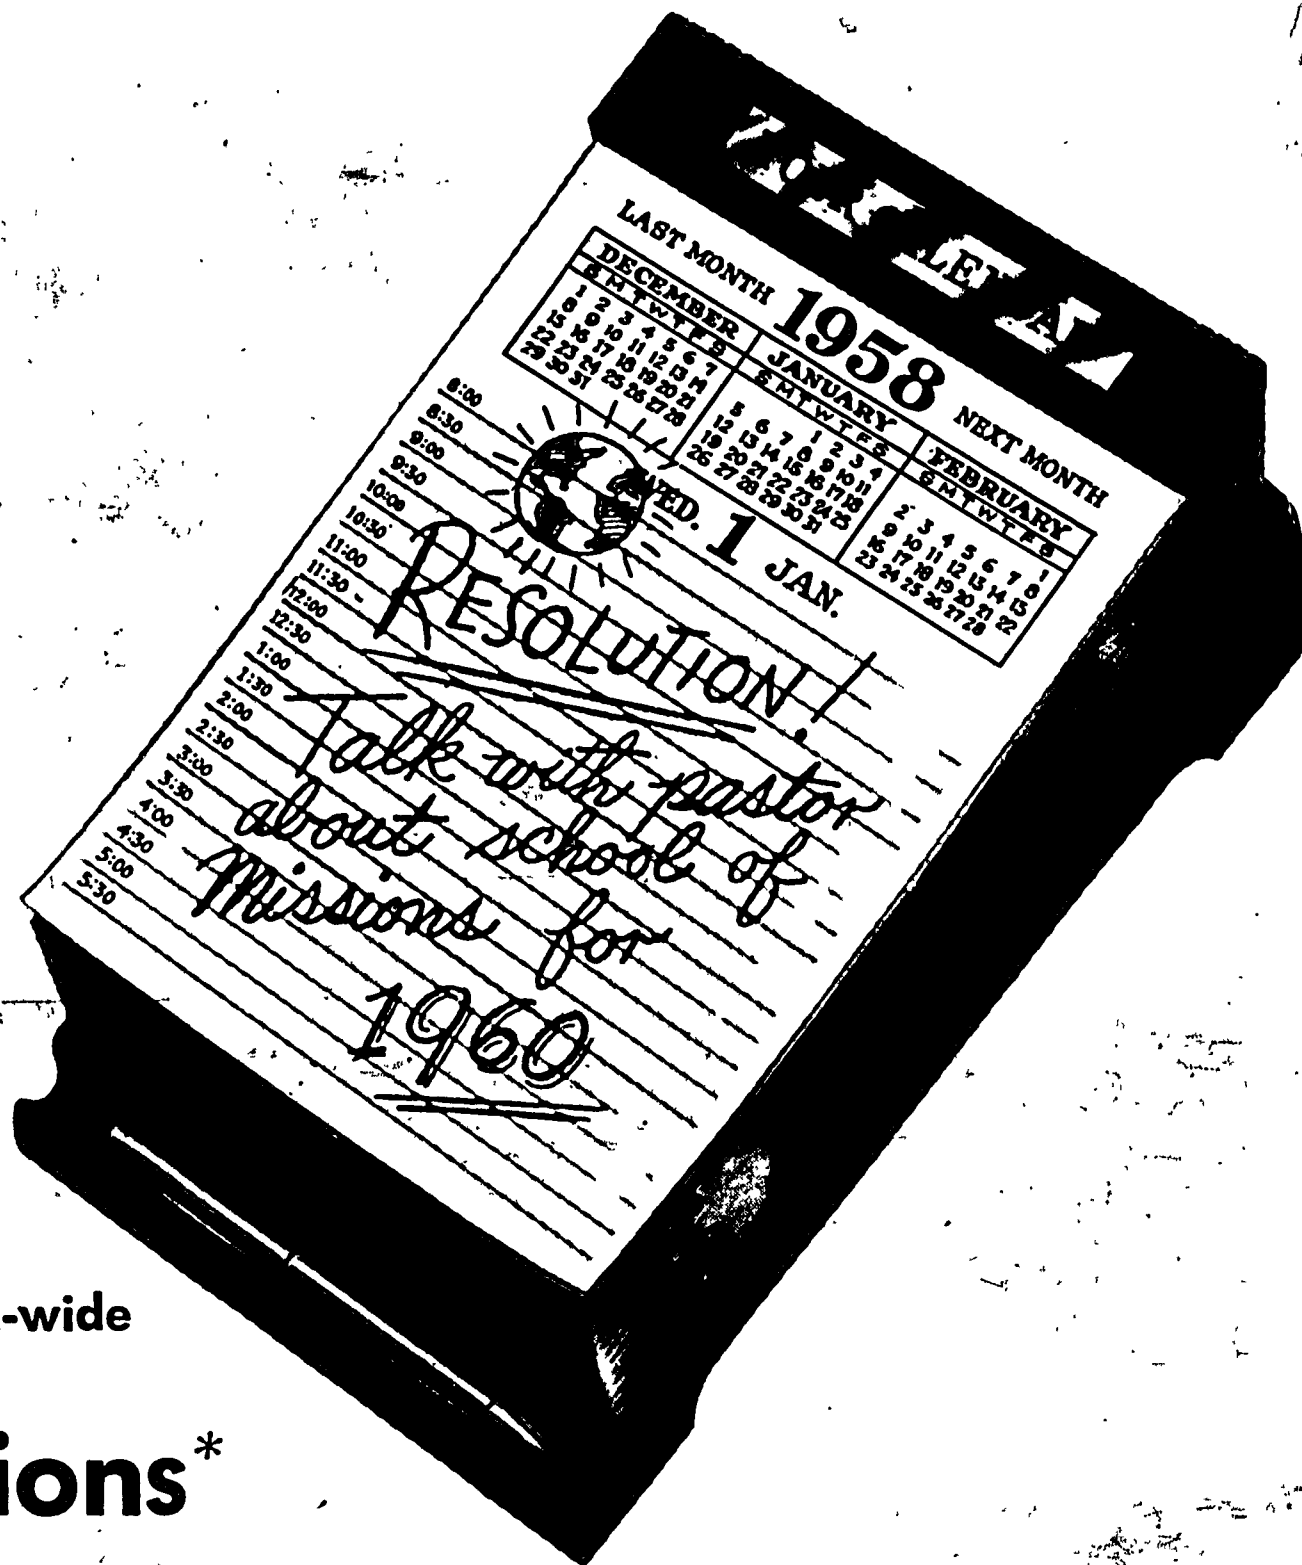 LAST MONTH 1958 NEXT MONTH
DECEMBER
S M T W T F S
1 2 3 4 5 6 7
8 9 10 11 12 13 14
15 16 17 18 19 20 21
22 23 24 25 26 27 28
29 30 31
JANUARY
S M T W T F S
1 2 3 4
5 6 7 8 9 10 11
12 13 14 15 16 17 18
19 20 21 22 23 24 25
26 27 28 29 30 31
FEBRUARY
S M T W T F S
1
2 3 4 5 6 7 8
9 10 11 12 13 14 15
16 17 18 19 20 21 22
23 24 25 26 27 28
WED. 1 JAN.
8:00
8:30
9:00
9:30
10:00
10:30
11:00
11:30
12:00
12:30
1:00
1:30
2:00
2:30
3:00
3:30
4:00
4:30
5:00
5:30
RESOLUTION!
Talk with pastor
about school of
Missions for
1960
-wide
ions*